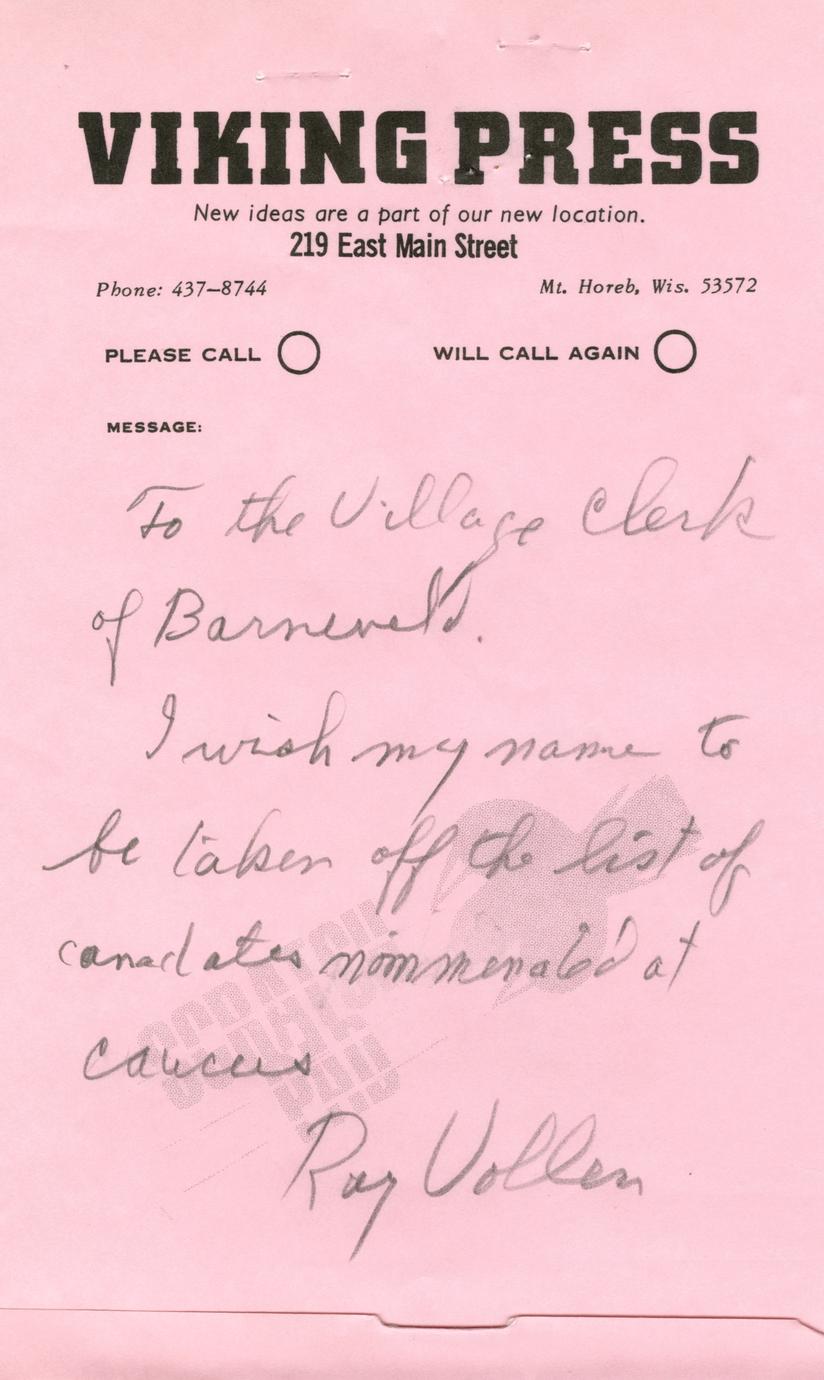 VIKING PRESS
New ideas are a part of our new location.
219 East Main Street
Phone: 437-8744 Mt. Horeb, Wis. 53572
PLEASE CALL WILL CALL AGAIN
MESSAGE:
To the Village Clerk
of Barneveld.
I wish my name to
be taken off the list of
canadates nommenated at
caucus
Ray Vollen